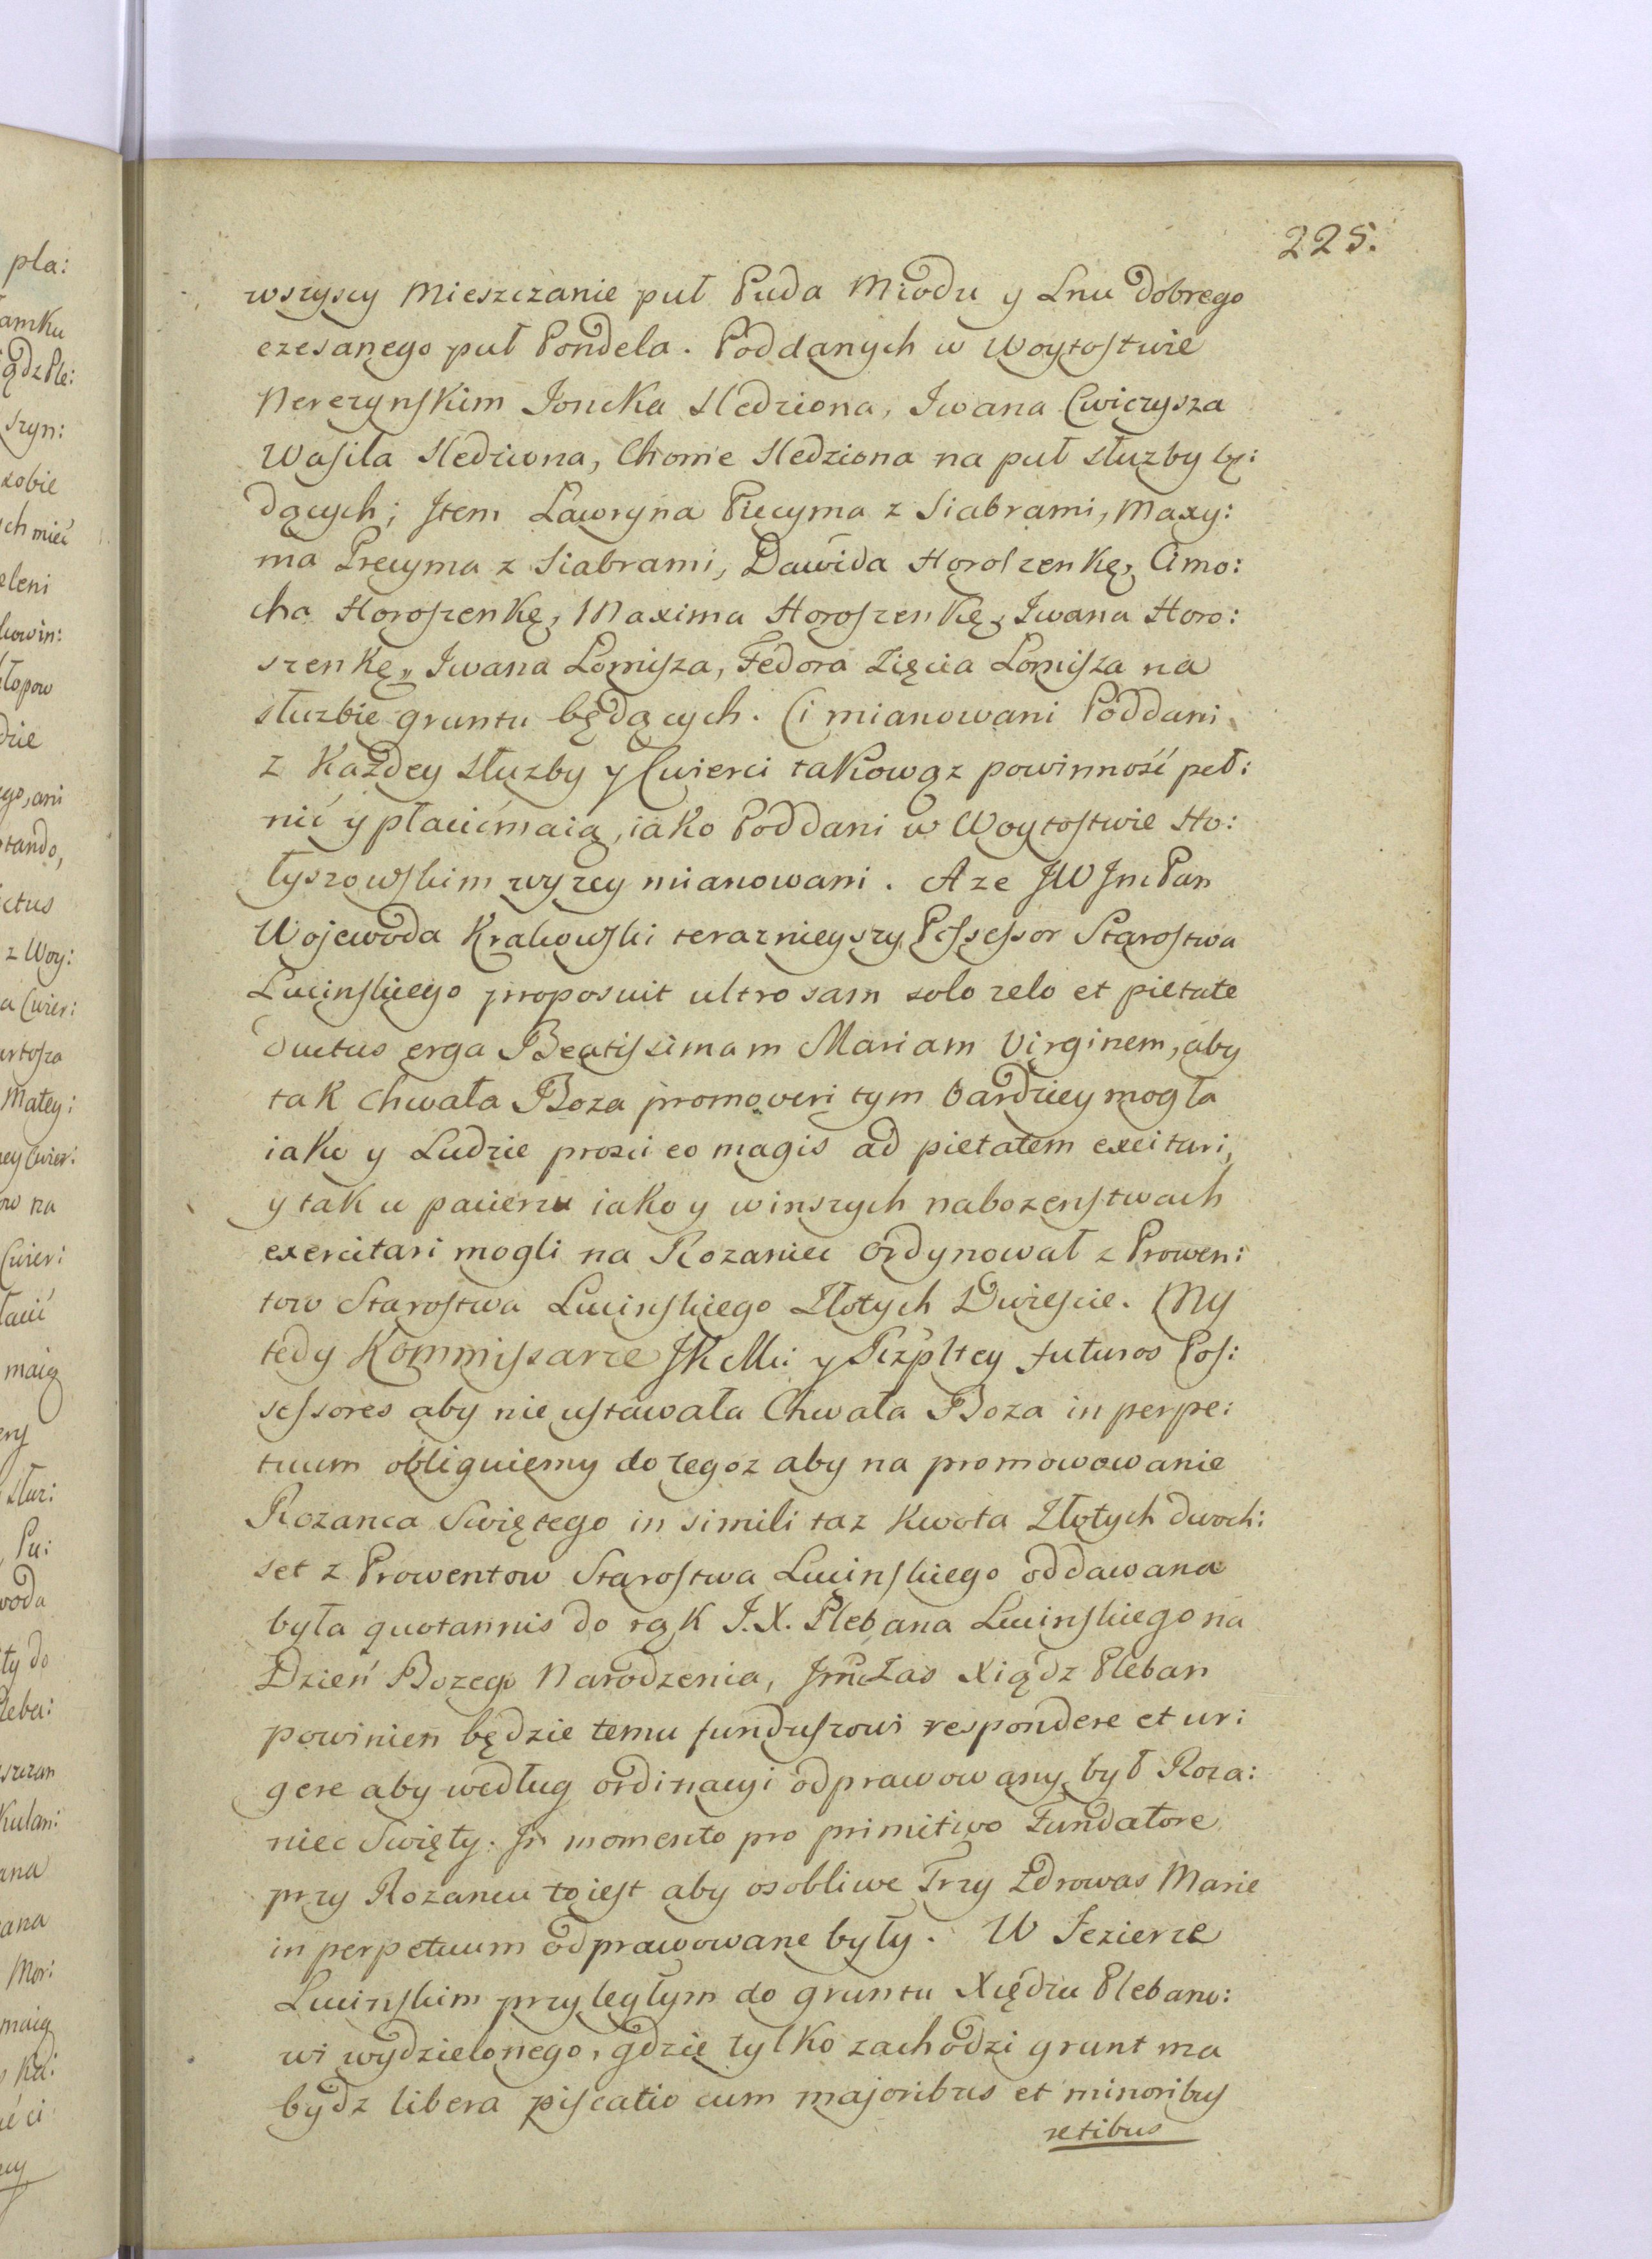 225.
wszyscy Mieszczanie puł Puda Miodu y Lnu dobrego
czesanego puł Pondela. Poddanych w Woytostwie
Nerezynskim Joncka Sledziona, Iwana Cwiczysza
Wasila Sledziona, Chome Sledziona na puł służby bę:
dących; Item Ławryna Piecyma z Siabrami, Maxy:
ma Precyma z Siabrami, Dawida Horoszenkę, Amo:
cha Horoszenkę, Maxima Horoszenkę, Iwana Horo:
szenkę, Iwana Łomisza, Fedora Zięcia Łomisza na
słuzbie gruntu będących. Ci mianowani Poddani
z Kazdey Słuzby y Cwierci takowąz powinność peł:
nić y płacić maią, iako Poddani w Woytostwie Ho:
łyszowskim wyzey mianowani. A ze JW Jmć Pan
Wojewoda Krakowski teraznieyszy Possessor Starostwa
Lucinskiego proposuit ultro sam solo zelo et pietate
ductus erga Beatissimam Mariam Virginem, aby
tak chwała Boza promoveri tym bardziey mogła
iako y Ludzie prosci eo magis ad pietatem excitari,
y tak u pacierza iako y w inszych nabozenstwach
exercitari mogli na Rozaniec ordynował z Prowen:
tow Starostwa Lucinskiego Złotych Dwiescie. My
tedy Kommissarze JKMci y Rzpltey futuros Pos:
sessores aby nie ustawała Chwała Boza in perpe:
tuum obliguiemy do tegoz aby na promowowanie
Rozanca Swiętego in simili taz kwota Złotych dwoch:
set z Prowentow Starostwa Lucinskiego oddawana
była quotannis do rąk J.X. Plebana Lucinskiego na
Dzień Bozego Narodzenia, Jmć Zas Xiądz Pleban
powinien będzie temu funduszowi respondere et ur:
gere aby według ordinacyi odprawowany był Roza:
niec Swięty. In momento pro primitivo Fundatore
przy Rozancu to iest aby osobliwe Trzy Zdrowas Marie
in perpetuum odprawowane były. W Jezierze
Lucinskim przyległym do gruntu Xiędzu Plebano:
wi wydzielonego, gdzie tylko zachodzi grunt ma
bydz libera piscatio cum majoribus et minoribus
retibus